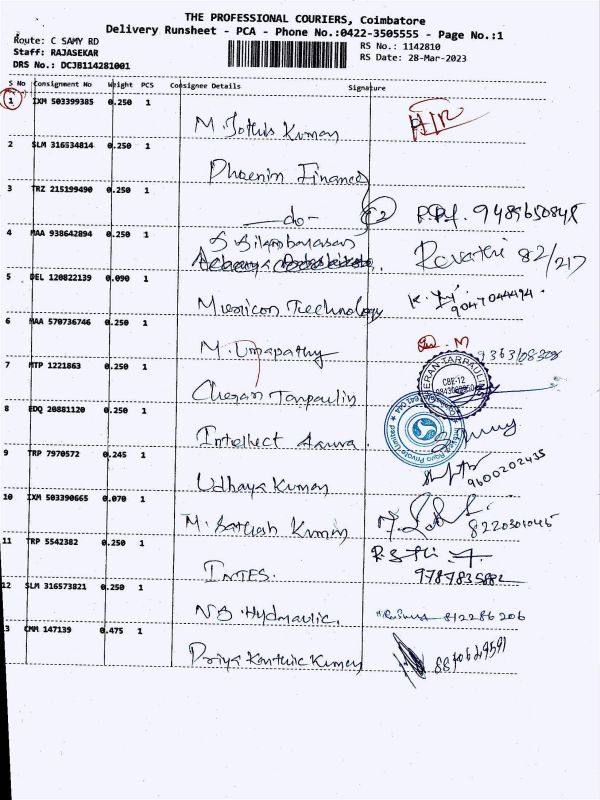 THE PROFESSIONAL COURIERS, Coimbatore
Delivery Runsheet - PCA - Phone No.:0422-3505555 - Page No.:1
Route: C SAMY RD
Staff: RAJASEKAR
DRS No.: DCJB114281001
RS No.: 1142810
RS Date: 28-Mar-2023
S No Consignment No Weight PCS Consignee Details Signature
1 IXM 503399385 0.250 1
M. Jothis Kumar
2 SLM 316534814 0.250 1
Phoenim Finance
3 TRZ 215199490 0.250 1
-do-
4 MAA 938642894 0.250 1
S Silambarasan
Revathi 82/217
5 DEL 120822139 0.090 1
Technology
9047044494
6 MAA 570736746 0.250 1
M. Umapathy
M
7 MTP 1221863 0.250 1
Cheran Tarpaulin
CBE-12
8 EDQ 20881120 0.250 1
Intellect
9 TRP 7970572 0.245 1
Udhaya Kumar
9600202435
10 IXM 503390665 0.070 1
M. Sathish Kumar
8220301045
11 TRP 5542382 0.250 1
INTES.
9787835882
12 SLM 316573821 0.250 1
NS Hydraulic.
812286206
3 CMM 147139 0.475 1
Priya Kumar